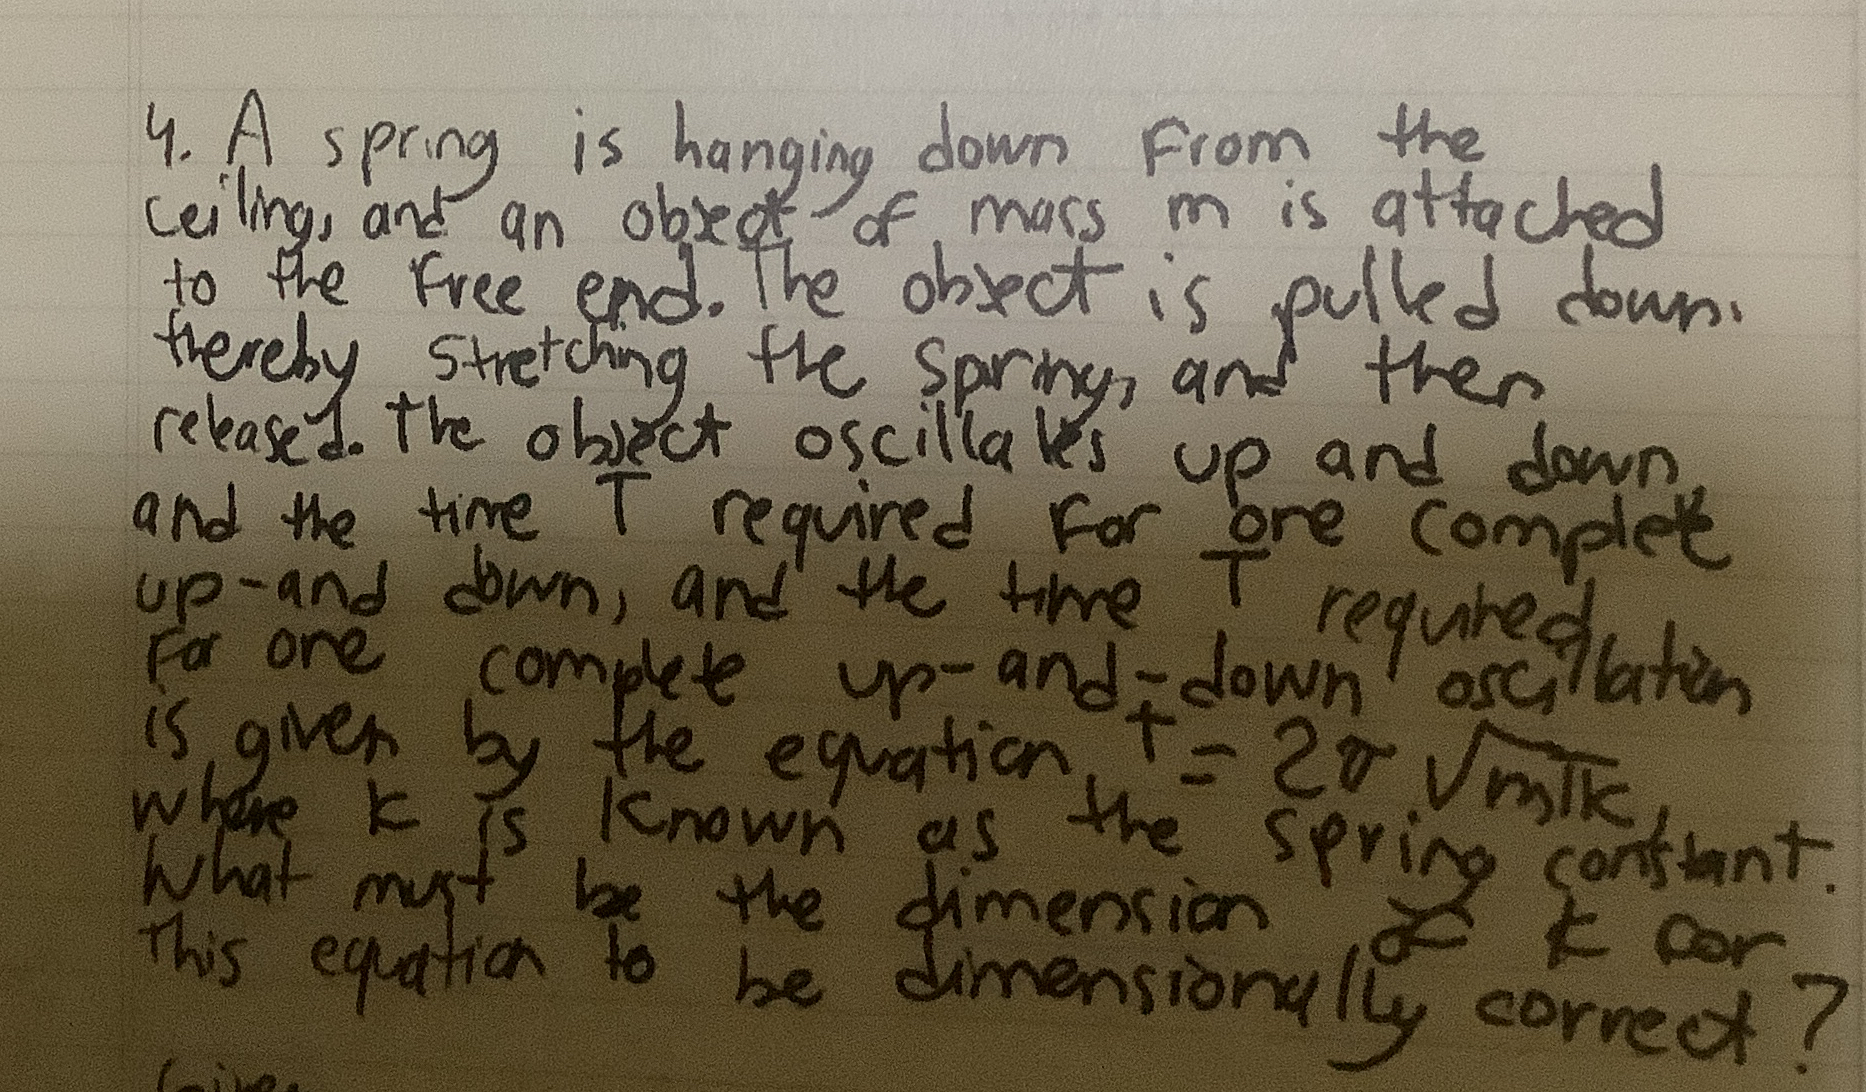 4. A spring is hanging down From the
ceiling, and an object of mass m is attached
to the Free end. The object is pulled down.
thereby stretching the spring, and then
released. The object oscillates up and down,
and the time T required For one complete
up-and down, and the time T required
For one complete up-and-down oscillation
is given by the equation T = 2π √m/k,
where k is known as the spring constant.
What must be the dimension of k for
this equation to be dimensionally correct?
Given